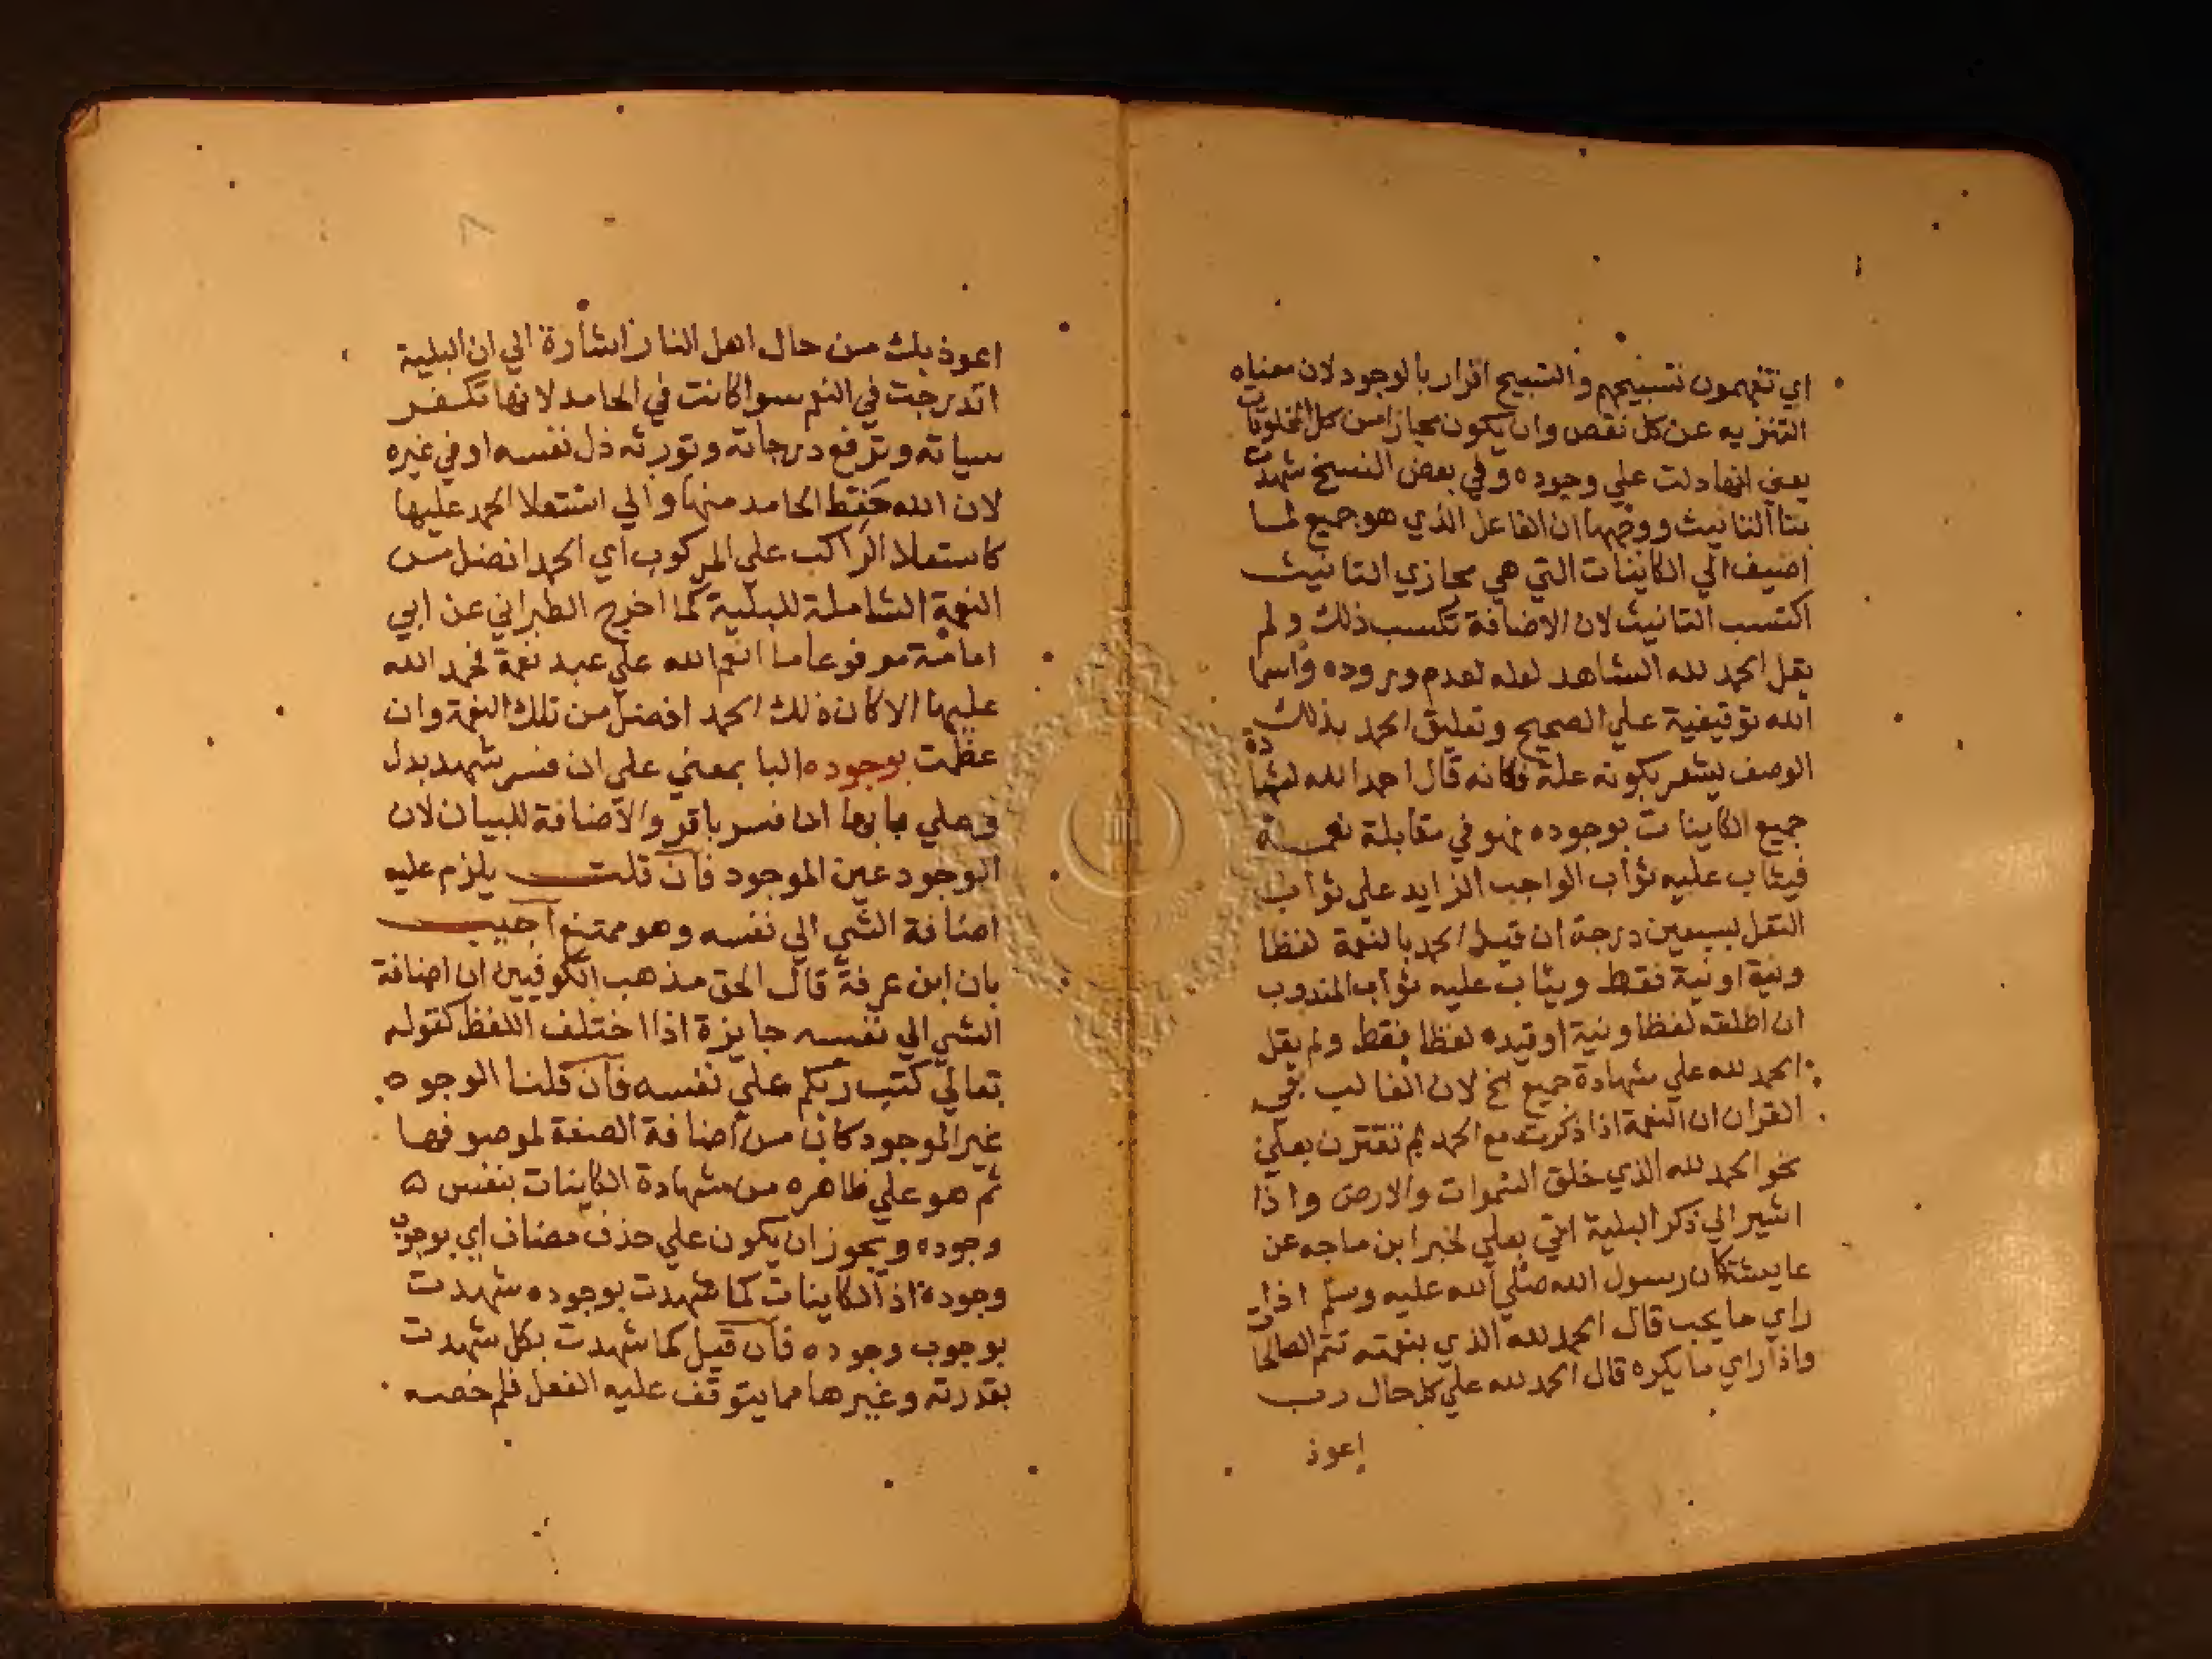 اي تفهمون تسبيحهم والتسبيح اقرار بالوجود لان معناه
التنزيه عن كل نقص وان يكون مجازا من كل المخلوقات
يعني انها دلت علي وجوده وفي بعض النسخ شهدت
بتا التانيث ووجهها ان الفاعل الذي هو جميع لما
اضيف الي الكاينات التي هي مجازي التانيث
اكتسب التانيث لان الاضافة تكسب ذلك ولم
يقل الحمد لله الشاهد لعله لعدم وروده واسما
الله توقيفية علي الصحيح وتعليق الحمد بذلك
الوصف يشعر بكونه علة فكانه قال احمد الله لشهادة
جميع الكاينات بوجوده فهو في مقابلة نعمة
فيثاب عليه ثواب الواجب الزايد علي ثواب
النفل بسبعين درجة ان قيد الحمد بالنعمة لفظا
ونية او نية فقط ويثاب عليه ثواب المندوب
ان اطلقه لفظا ونية او قيده لفظا فقط ولم يقل
الحمد لله علي شهادة جميع الخ لان الغالب في
القران ان النعمة اذا ذكرت مع الحمد لم تقترن بعلي
نحو الحمد لله الذي خلق السموات والارض واذا
اشير الي ذكر البلية اتي بعلي لخبر ابن ماجه عن
عايشة كان رسول الله صلي الله عليه وسلم اذا
راي ما يحب قال الحمد لله الذي بنعمته تتم الصالحات
واذا راي ما يكره قال الحمد لله علي كل حال رب
اعوذ
اعوذ بك من حال اهل النار اشارة الي ان البلية
اندرجت في النعم سوا كانت في الحامد لانها تكفر
سياته وترفع درجاته وتورثه ذل نفسه او في غيره
لان الله حفظ الحامد منها والي استعلا الحمد عليها
كاستعلا الراكب علي المركوب اي الحمد افضل من
النعمة الشاملة للبلية كما اخرج الطبراني عن ابي
امامة مرفوعا ما انعم الله علي عبد نعمة فحمد الله
عليها الا كان ذلك الحمد افضل من تلك النعمة وان
عظمت بوجوده البا بمعني علي ان فسر شهد بدل
وعلي بابها ان فسر باقر والاضافة للبيان لان
الوجود عين الموجود فان قلت يلزم عليه
اضافة الشي الي نفسه وهو ممتنع اجيب
بان ابن عرفة قال الحق مذهب الكوفيين ان اضافة
الشي الي نفسه جايزة اذا اختلف اللفظ كقوله
تعالي كتب ربكم علي نفسه فان قلنا الوجود
غير الموجود كان من اضافة الصفة لموصوفها
ثم هو علي ظاهره من شهادة الكاينات بنفس
وجوده ويجوز ان يكون علي حذف مضاف اي بوجوب
وجوده اذ الكاينات كما شهدت بوجوده شهدت
بوجوب وجوده فان قيل كما شهدت بكل شهدت
بقدرته وغيرها مما يتوقف عليه الفعل فلم خصه